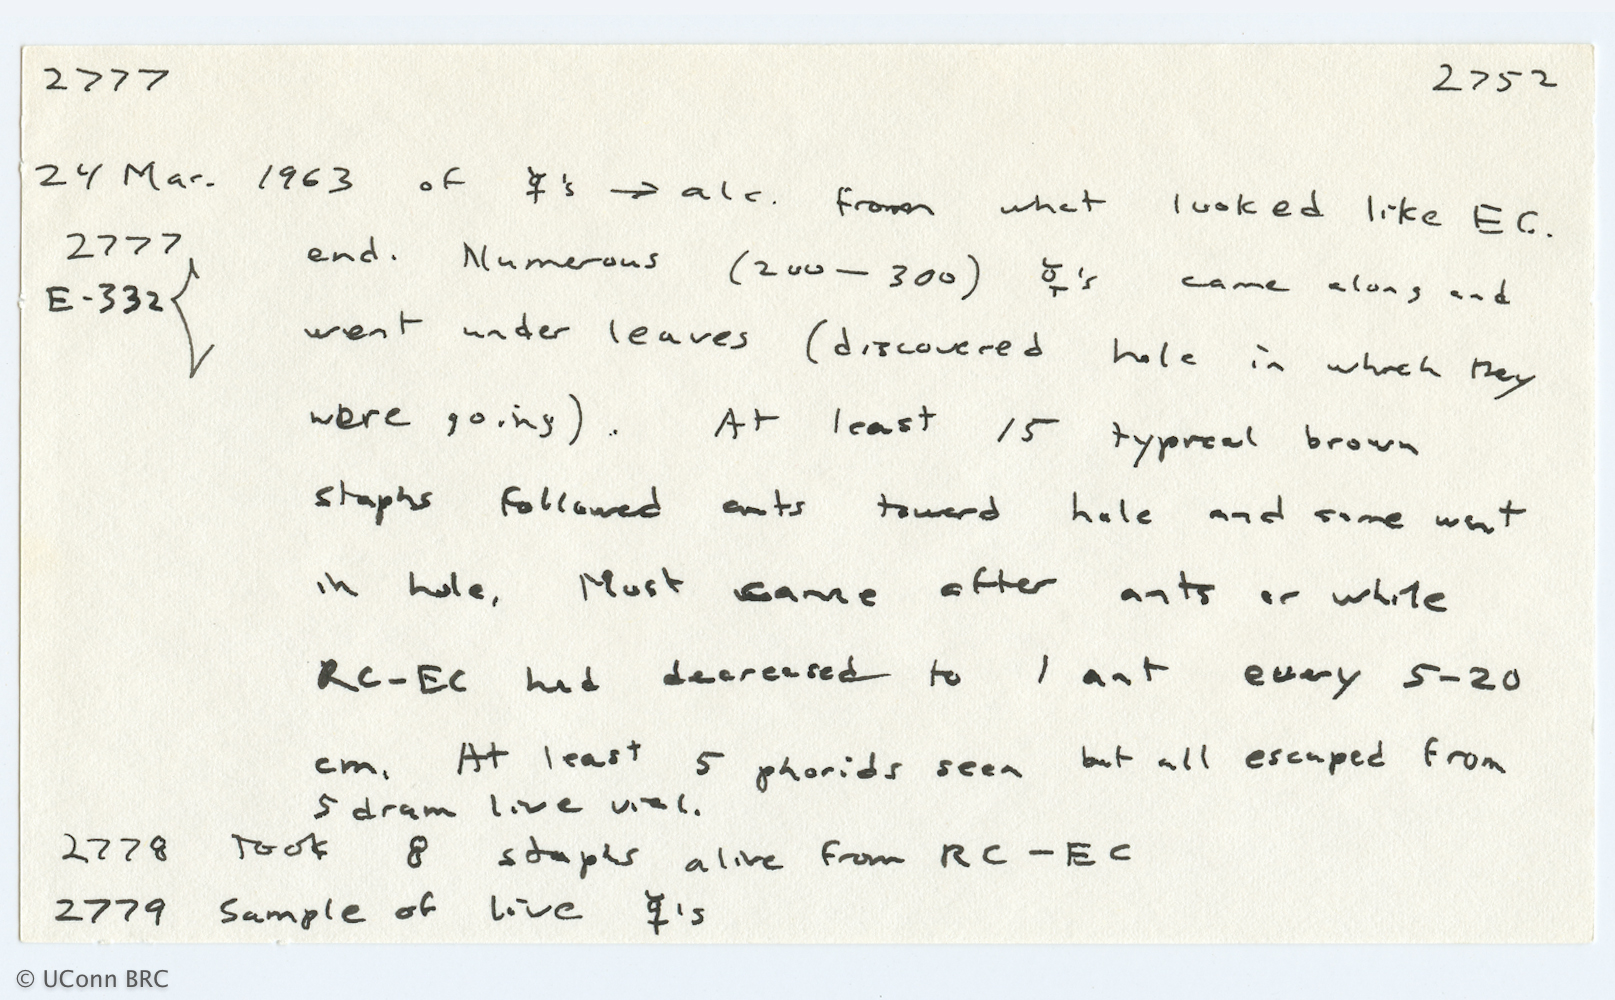 2777 2752
24 Mar. 1963 of ☿'s → alc. from what looked like EC.
2777 end. Numerous (200–300) ☿'s came along and
E-332 went under leaves (discovered hole in which they
were going). At least 15 typical brown
staphs followed ants toward hole and some went
in hole. Most came after ants or while
RC-EC had decreased to 1 ant every 5-20
cm. At least 5 phorids seen but all escaped from
5 dram live vial.
2778 Took 8 staphs alive from RC-EC
2779 Sample of live ☿'s
© UConn BRC